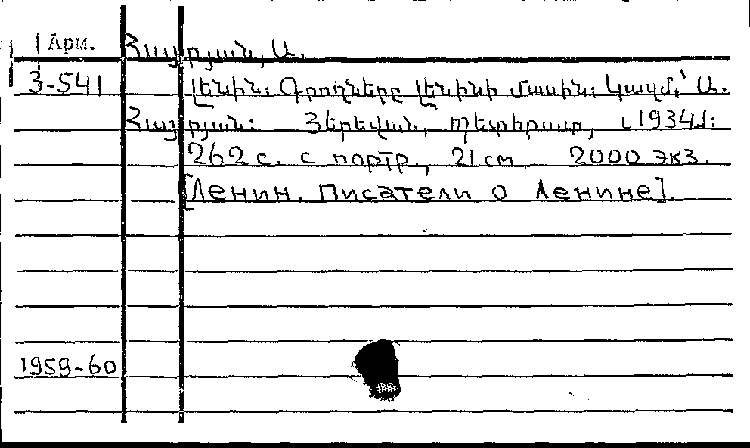 Арм. Հայրյան, Ա.
3-541 Լենին: Գրողները Լենինի մասին: Կազմ.՝ Ա.
Հայրյան: Յերեվան, Պետհրատ, [1934]:
262 с. с портр., 21 см 2000 экз.
[Ленин. Писатели о Ленине].
1959-60